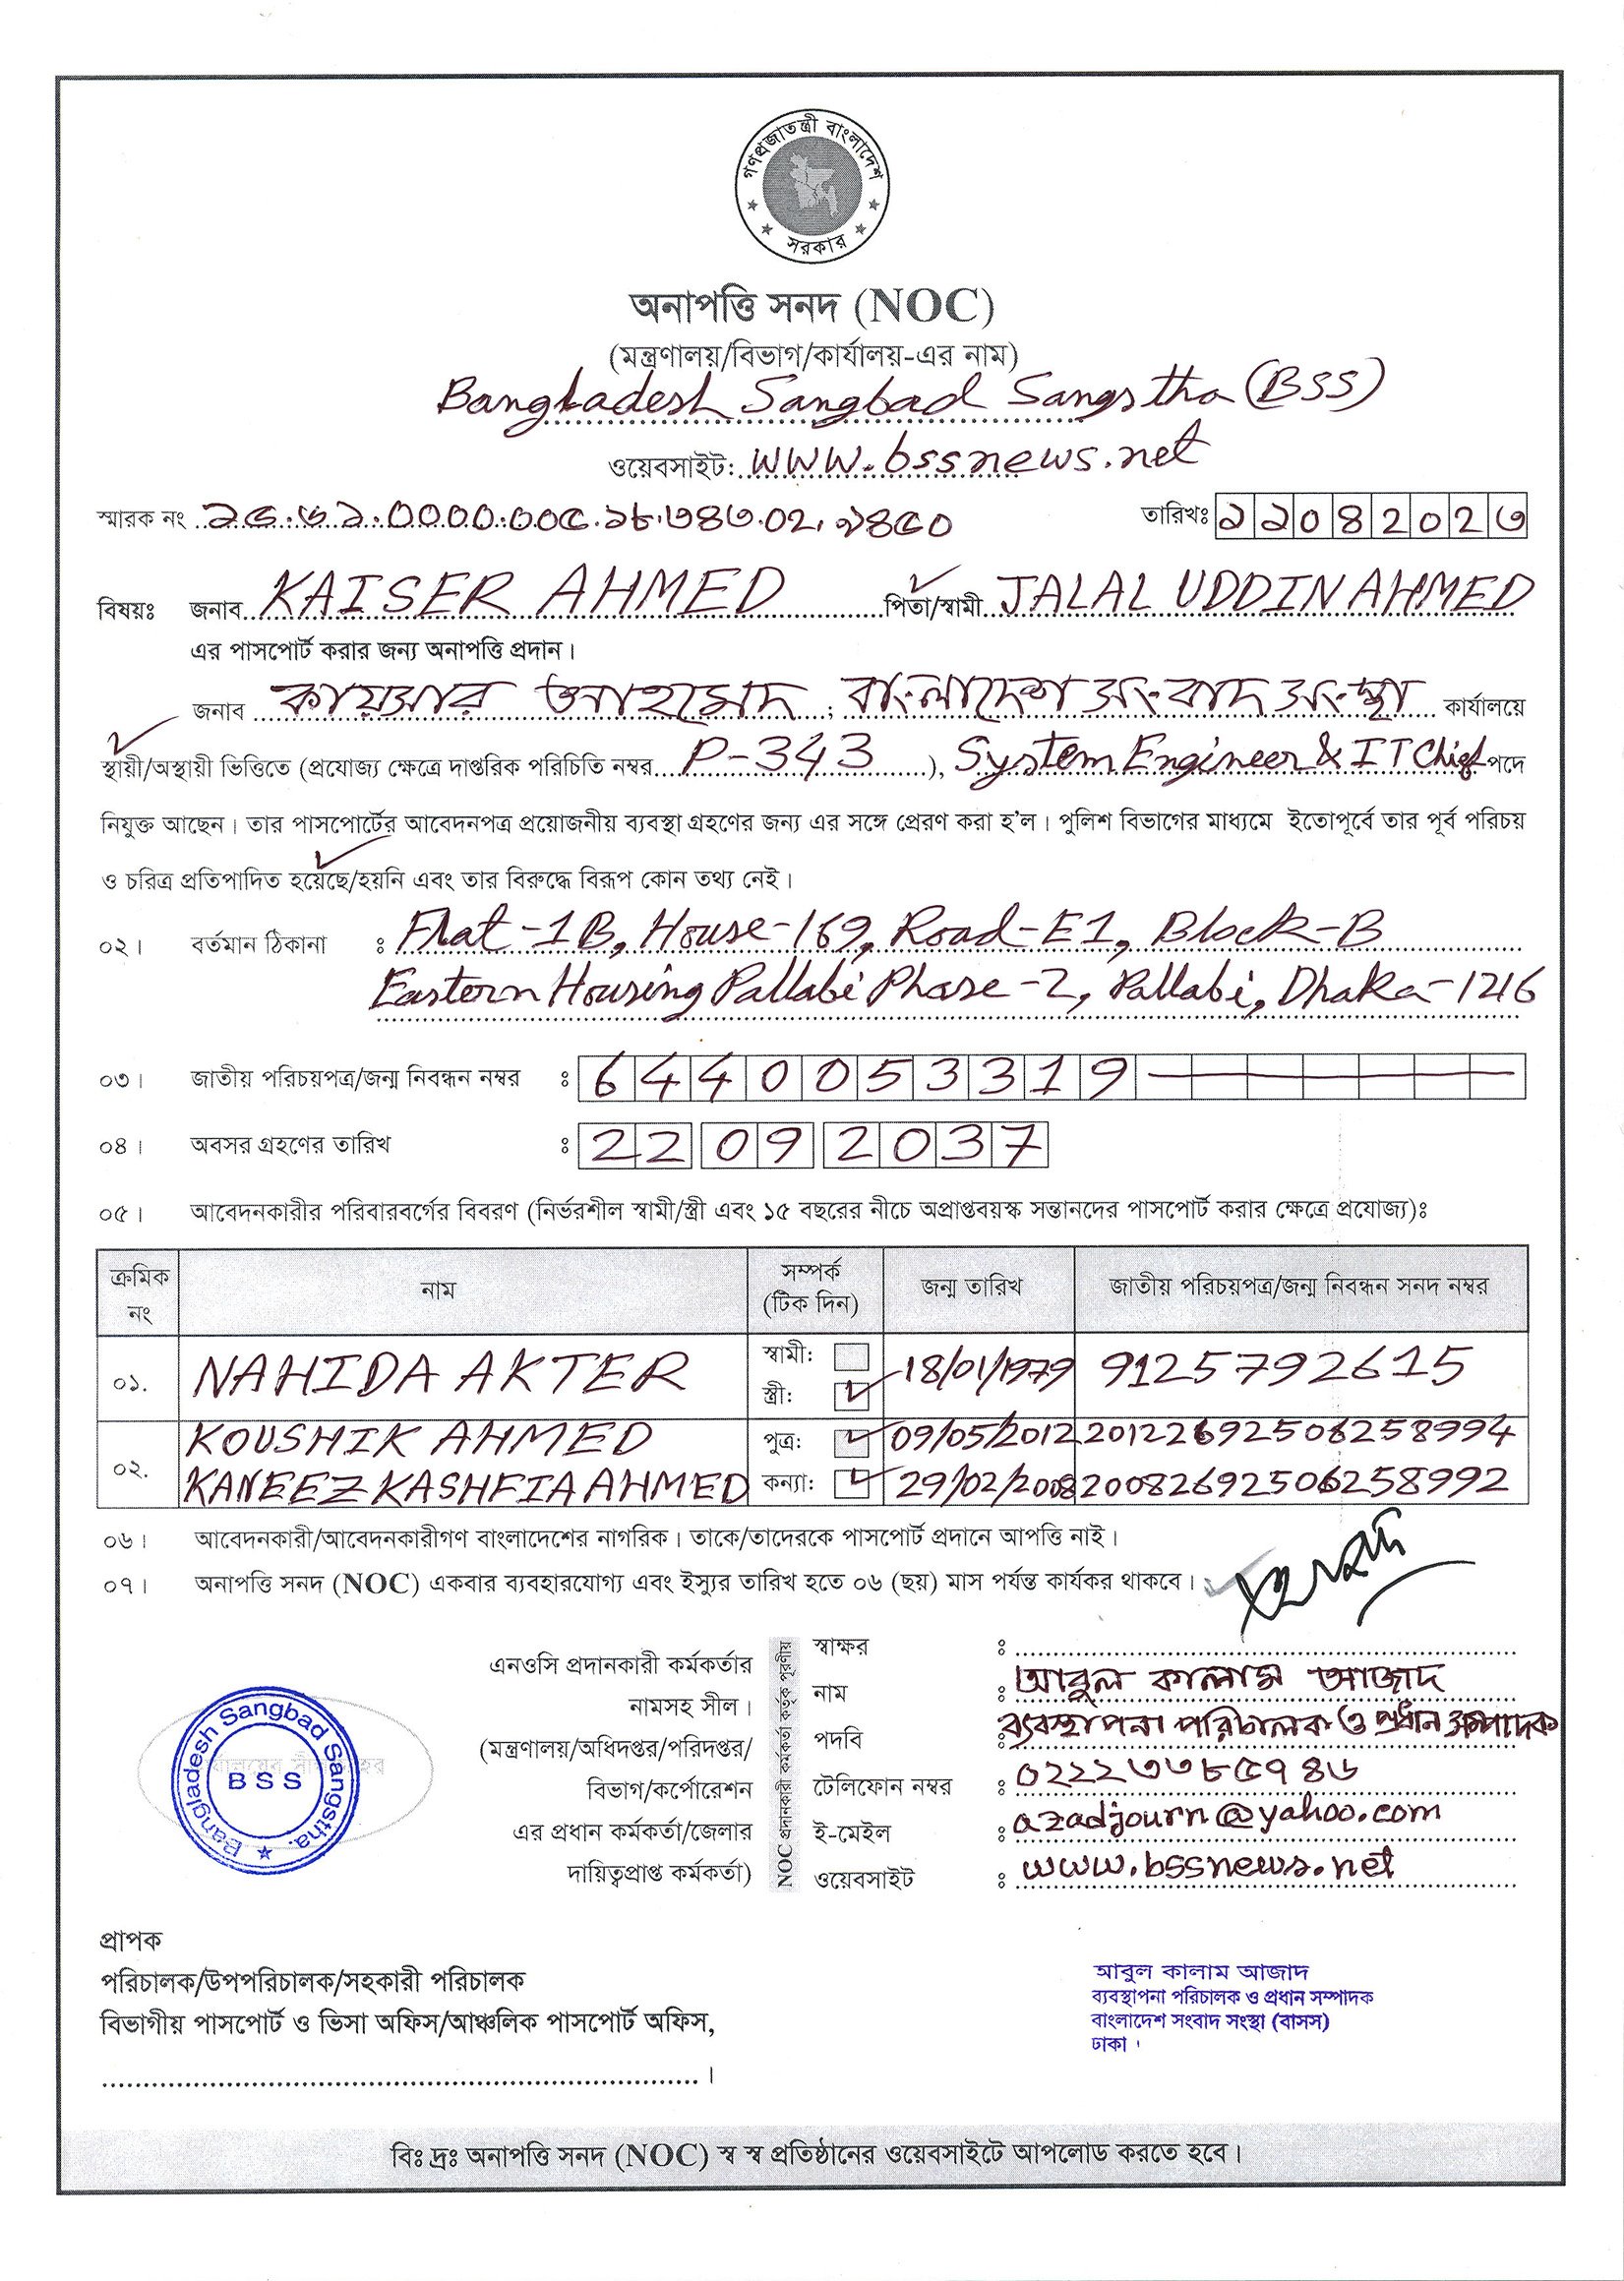 গণপ্রজাতন্ত্রী বাংলাদেশ
সরকার
অনাপত্তি সনদ (NOC)
(মন্ত্রণালয়/বিভাগ/কার্যালয়-এর নাম)
Bangladesh Sangbad Sangstha (BSS)
ওয়েবসাইট: www.bssnews.net
স্মারক নং
তারিখঃ ১১০৪২০২৩
বিষয়ঃ জনাব KAISER AHMED পিতা/স্বামী JALAL UDDIN AHMED
এর পাসপোর্ট করার জন্য অনাপত্তি প্রদান।
জনাব কায়সার আহমেদ, বাংলাদেশ সংবাদ সংস্থা কার্যালয়ে
স্থায়ী/অস্থায়ী ভিত্তিতে (প্রযোজ্য ক্ষেত্রে দাপ্তরিক পরিচিতি নম্বর P-343), System Engineer & IT Chief পদে
নিযুক্ত আছেন। তার পাসপোর্টের আবেদনপত্র প্রয়োজনীয় ব্যবস্থা গ্রহণের জন্য এর সঙ্গে প্রেরণ করা হ'ল। পুলিশ বিভাগের মাধ্যমে ইতোপূর্বে তার পূর্ব পরিচয়
ও চরিত্র প্রতিপাদিত হয়েছে/হয়নি এবং তার বিরুদ্ধে বিরূপ কোন তথ্য নেই।
০২। বর্তমান ঠিকানা : Flat-1B, House-169, Road-E1, Block-B
Eastern Housing Pallabi Phase-2, Pallabi, Dhaka-1216
০৩। জাতীয় পরিচয়পত্র/জন্ম নিবন্ধন নম্বর ঃ 6440053319
০৪। অবসর গ্রহণের তারিখ ঃ 22 09 2037
০৫। আবেদনকারীর পরিবারবর্গের বিবরণ (নির্ভরশীল স্বামী/স্ত্রী এবং ১৫ বছরের নীচে অপ্রাপ্তবয়স্ক সন্তানদের পাসপোর্ট করার ক্ষেত্রে প্রযোজ্য)ঃ
ক্রমিক নং নাম সম্পর্ক (টিক দিন) জন্ম তারিখ জাতীয় পরিচয়পত্র/জন্ম নিবন্ধন সনদ নম্বর
০১. NAHIDA AKTER স্বামী: স্ত্রী: 18/01/1979 9125792615
০২. KOUSHIK AHMED পুত্র: 09/05/2012 20122692506258994
KANEEZ KASHFIA AHMED কন্যা: 29/02/2008 20082692506258992
০৬। আবেদনকারী/আবেদনকারীগণ বাংলাদেশের নাগরিক। তাকে/তাদেরকে পাসপোর্ট প্রদানে আপত্তি নাই।
০৭। অনাপত্তি সনদ (NOC) একবার ব্যবহারযোগ্য এবং ইস্যুর তারিখ হতে ০৬ (ছয়) মাস পর্যন্ত কার্যকর থাকবে।
এনওসি প্রদানকারী কর্মকর্তার
নামসহ সীল।
(মন্ত্রণালয়/অধিদপ্তর/পরিদপ্তর/
বিভাগ/কর্পোরেশন
এর প্রধান কর্মকর্তা/জেলার
দায়িত্বপ্রাপ্ত কর্মকর্তা)
NOC প্রদানকারী কর্মকর্তা কর্তৃক পূরণীয়
স্বাক্ষর ঃ
নাম ঃ আবুল কালাম আজাদ
পদবি ঃ ব্যবস্থাপনা পরিচালক ও প্রধান সম্পাদক
টেলিফোন নম্বর ঃ ০২২২৩৩৮৫৭৪৬
ই-মেইল ঃ azadjourn@yahoo.com
ওয়েবসাইট ঃ www.bssnews.net
Bangladesh Sangbad Sangstha.
BSS
প্রাপক
পরিচালক/উপপরিচালক/সহকারী পরিচালক
বিভাগীয় পাসপোর্ট ও ভিসা অফিস/আঞ্চলিক পাসপোর্ট অফিস,
আবুল কালাম আজাদ
ব্যবস্থাপনা পরিচালক ও প্রধান সম্পাদক
বাংলাদেশ সংবাদ সংস্থা (বাসস)
ঢাকা।
বিঃ দ্রঃ অনাপত্তি সনদ (NOC) স্ব স্ব প্রতিষ্ঠানের ওয়েবসাইটে আপলোড করতে হবে।